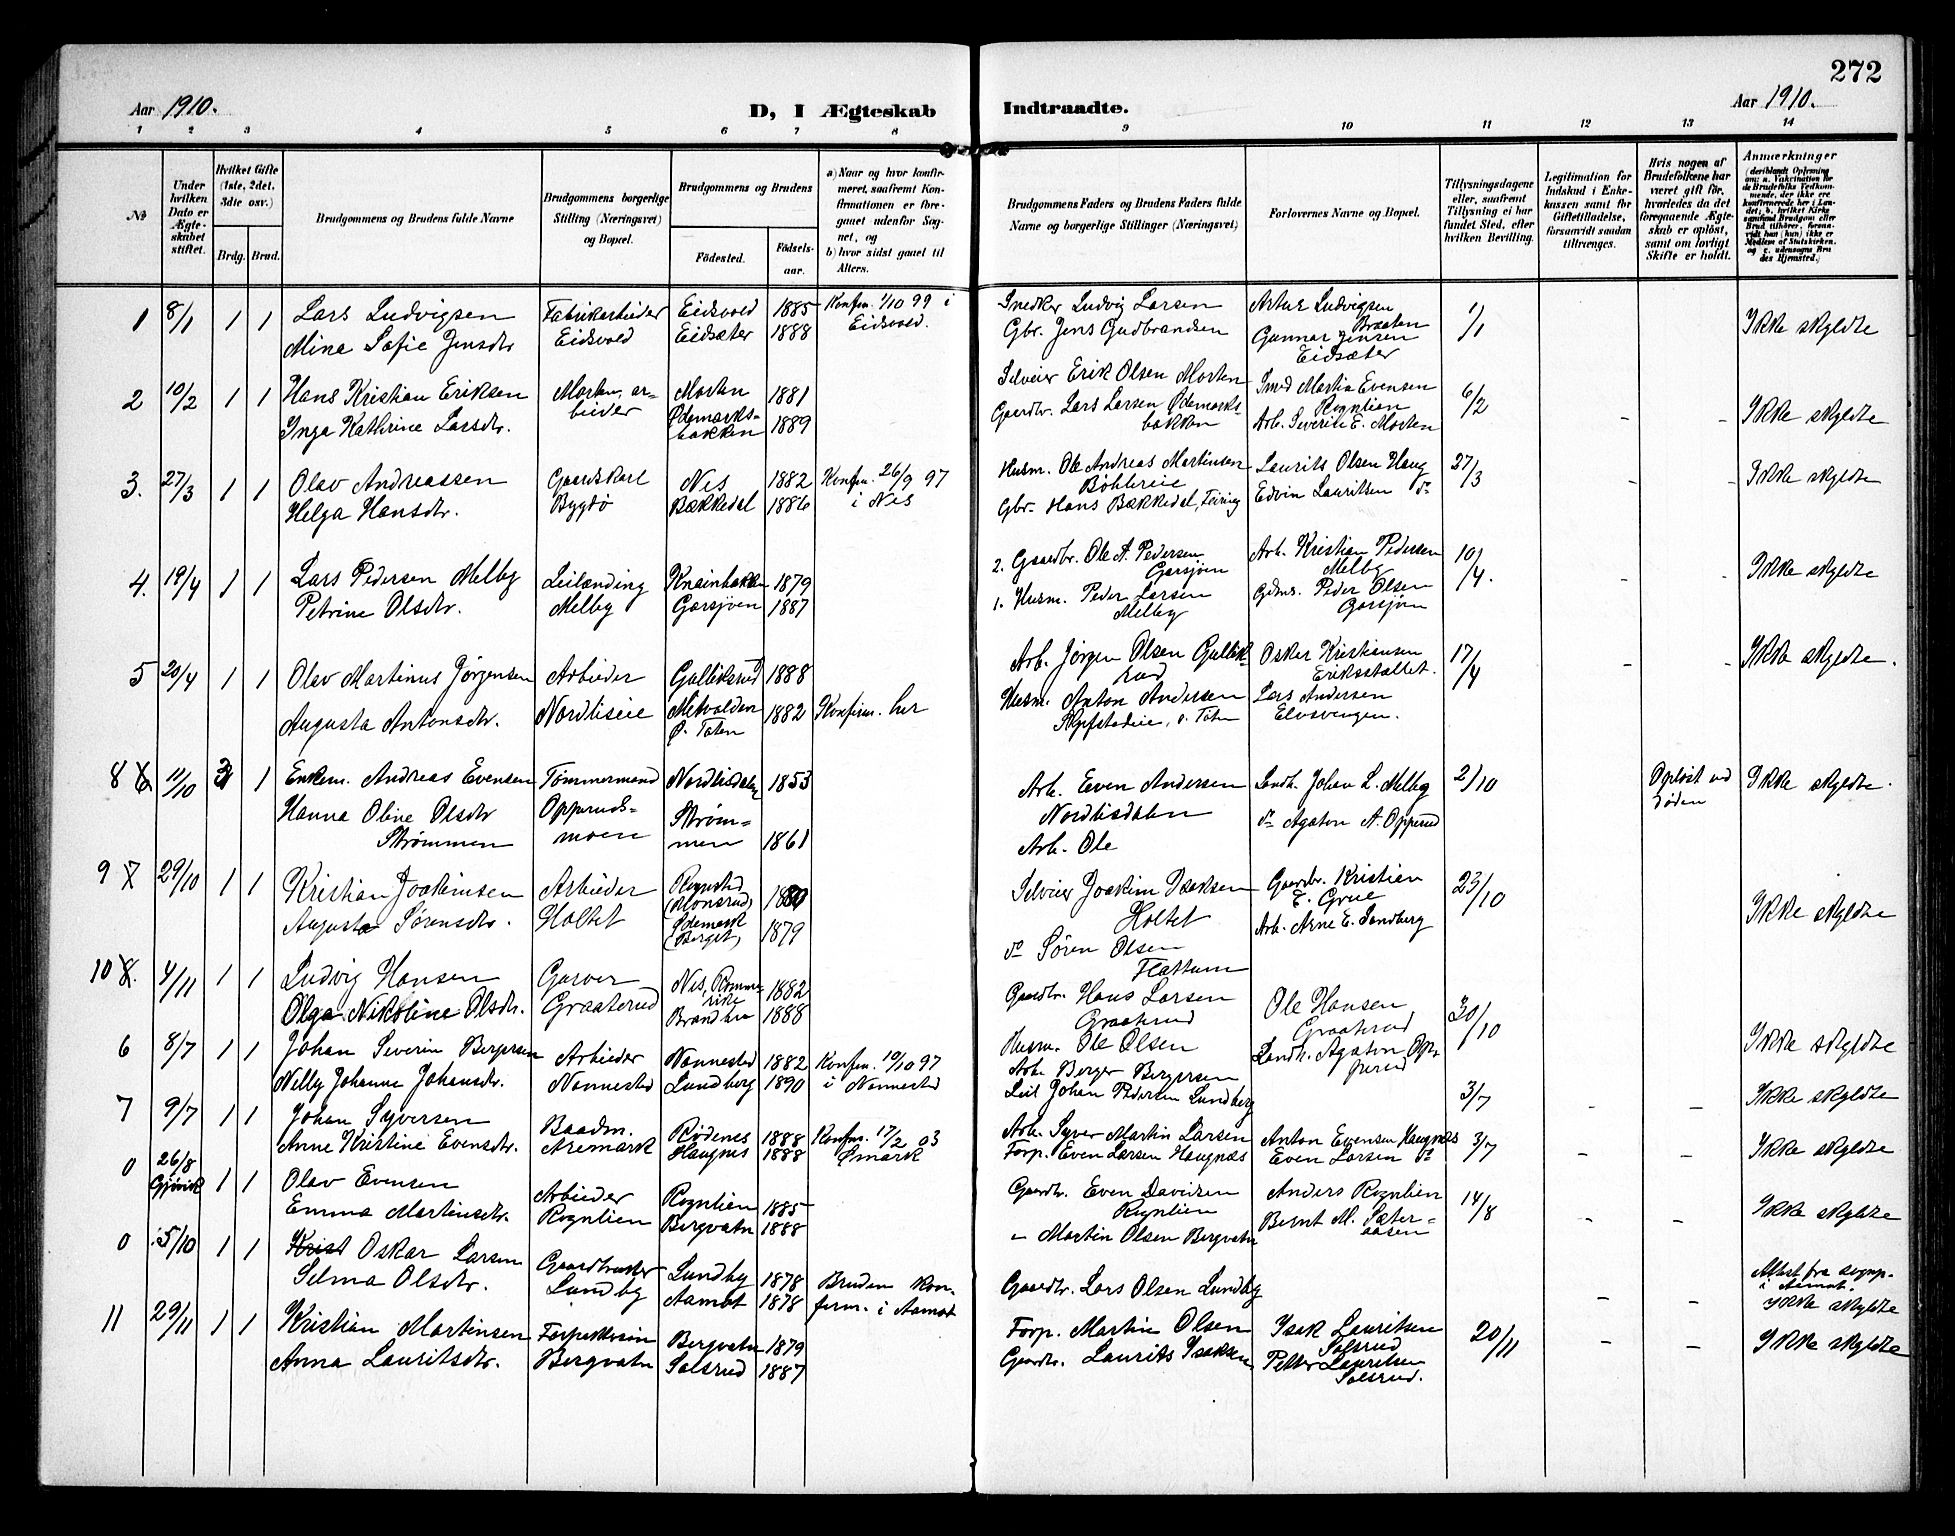 272
Aar 1910.
D, I Ægteskab
Indtraadte.
Aar 1910.
1 2 3 4 5 6 7 8 9 10 11 12 13 14
№
Under hvilken Dato er Ægteskabet stiftet.
Hvilket Gifte (1ste, 2det, 3die osv.)
Brdg. Brud.
Brudgommens og Brudens fulde Navne
Brudgommens borgerlige Stilling (Næringsvei) og Bopæl.
Brudgommens og Brudens
Fødested.
Fødselsaar.
a) Naar og hvor konfirmeret, saafremt Konfirmationen er foregaaet udenfor Sognet, og
b) hvor sidst gaaet til Alters.
Brudgommens Faders og Brudens Faders fulde Navne og borgerlige Stillinger (Næringsvei)
Forlovernes Navne og Bopæl.
Tillysningsdagene eller, saafremt Tillysning ei har fundet Sted, efter hvilken Bevilling.
Legitimation for Indskud i Enkekassen samt for Giftetilladelse, forsaavidt saadan tiltrænges.
Hvis nogen af Brudefolkene har været gift før, hvorledes da det foregaaende Ægteskab er opløst, samt om lovligt Skifte er holdt.
Anmerkninger
1 8/1 1 1 Lars Ludvigsen Fabrikarbieder Eidsvold 1885 Konfirm. 1/10 99 i
Mina Sofie Jensdtr Eidsvold Eidsæter 1888 Eidsvold.
Snedker Ludvig Larsen Artur Ludvigsen Braaten 1/1 Ikke skyldte
Gbr. Jens Gudbrandsen Gunnar Jensen Eidsæter
2 10/2 1 1 Hans Kristian Eriksen Morten, arbieder Morten 1881
Inga Kathrine Larsdtr. Ødemarksbakken 1889
Selveier Erik Olsen Morten Smed Martin Evensen Rognlien 6/2 – – Ikke skyldte
Gaardbr. Lars Larsen Ødemarksbakken Arb. Severin E. Morten
3. 27/3 1 1 Olav Andreassen Gaardskarl Nes 1882 Konfirm. 26/9 97
Helga Hansdtr. Bygdø Bækkedal 1886 i Nes
Husm. Ole Andreas Martinsen Laurits Olsen Haug 27/3 – – Ikke skyldte
Gbr. Hans Bækkedal, Feiring Edvin Lauritsen do
4. 19/4 1 1 Lars Pedersen Melby Leilænding Knainbakken 1879
Petrine Olsdtr. Melby Garsjøen 1887
2. Gaardbr. Ole A. Pedersen Garsjøen Arb. Kristian Pedersen Melby 10/4. – – Ikke skyldte
1. Husm. Peder Larsen Melby Gdms. Peder Olsen Garsjøen
5 20/4 1 1 Olav Martinus Jørgensen Arbieder Galliksrud 1888
Augusta Antonsdtr. Nordlieie Ø. Toten 1882 Konfirm. her
Arb. Jørgen Olsen Galliksrud Oskar Kristiansen Eriksstallet. 17/4 – – Ikke skyldte.
Husm. Anton Andersen Lars Andersen Elvsvengen.
8 6 11/10 3 1 Enkem. Andreas Evensen Tømmermand Nordlisdalen 1853
Hanna Oline Olsdtr Strømmen Opperudsmoen Strømmen 1861
Arb. Even Andersen Nordlisdalen Landh. Johan L. Melby 2/10 Opløst ved Døden Ikke skyldte.
Arb. Ole do Agaton A. Opperud
9 7 29/10 1 1 Kristian Joakimsen Arbieder Rognstad
Augusta Sørensdtr. Holtet Ødemark (Berget) 1879
Selveier Joakim Isaksen Holtet Gaardbr. Kristian E. Grue 23/10 Ikke skyldte
do Søren Olsen Flattum Arb. Arne E. Sandberg
10 8. 4/11 1 1 Ludvig Hansen Garver Nes, Romerike 1882
Olga Nikoline Olsdtr. Graaterud Brandhu 1888
Gaardbr. Hans Larsen Graaterud Ole Hansen Graaterud 30/10 Ikke skyldte
Husm. Ole Olsen Landh. Agaton Opperud
6 8/7 1 1 Johan Severin Bergersen Arbieder Nannestad 1882 Konfirm. 10/10 97
Nelly Johanne Johansdtr. Nannestad Lundberg 1890 i Nannestad
Arb. Berger Bergersen
Leil Johan Pedersen Lundberg 3/7 – – Ikke skyldte
7 9/7 1 1 Johan Syversen Baadm. Rødenes 1888 Konfirm. 17/2 03
Anne Kristine Evensdtr. Aremark Haugnes 1888 Ømark
Arb. Syver Martin Larsen Anton Evensen Haugnæs 3/7 – – Ikke skyldte
Forp. Even Larsen Haugnæs Even Larsen do
0 26/8 Gjøvik 1 1 Olav Evensen Arbieder Rognlien 1885
Emma Martinsdtr. Rognlien Bergvatn 1888
Gaardbr. Even Davidsen Rognlien Anders Rognlien 14/8 – – Ikke skyldte
„ Martin Olsen Bergvatn Bernt M. Sæteraasen
0 5/10 1 1 Krist Oskar Larsen Gaardbruker Lundby 1878 Bruden konfirm. i Aamot
Selma Olsdtr. Lundby Aamot 1878
Gaardbr. Lars Olsen Lundby – – Attest fra sognp. i Aamot. Ikke skyldte
11 29/11 1 1 Kristian Martinsen Forpakter Bergvatn 1879
Anna Lauritsdtr. Bergvatn Solsrud 1887
Forp. Martin Olsen Isak Lauritsen Solsrud 20/11 – – Ikke skyldte
Gaardbr. Laurits Isaksen Petter Lauritsen Solsrud.